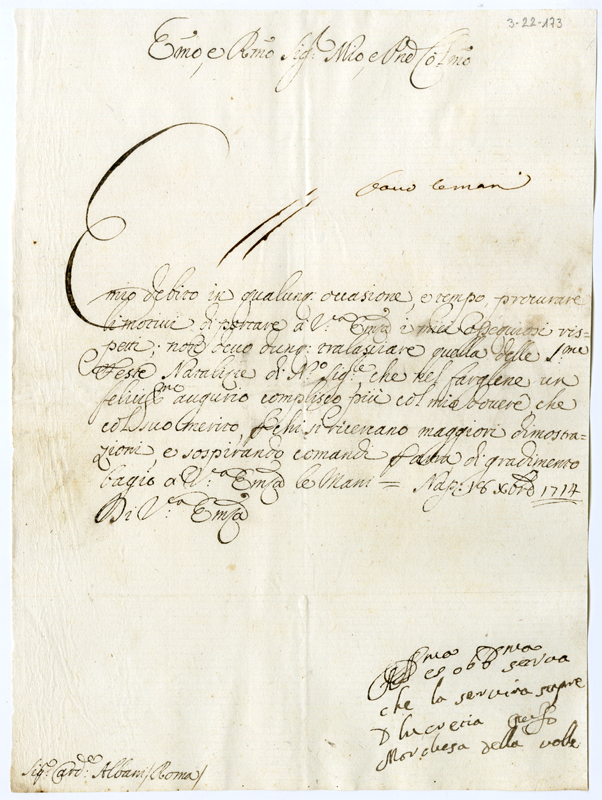 3-22-173
Emo, e Rmo Sigr Mio, e Pne Colmo
bacio le mani
È
mio debito in qualunq: occasione, e tempo, procurare
li motivi di portare a V.ra Emza i miei ossequiosi ris=
petti; non devo dunq: tralasciare quella delle S.me
Feste Natalizie di N.ro Sig.re che nel fargliene un
felicis.mo augurio complisco più col mio dovere, che
col suo merito, p chi si ricercano maggiori dimostra=
zioni, e sospirando comandi di gradimento
bagio a V.ra Emza le Mani = Nap: 18 Xbre 1714
Di V.ra Emza
ma ma
et obb serva
che la servirà sempre
D Lucrezia
Marchesa della valle
Sigr Card.le Albani /Roma/